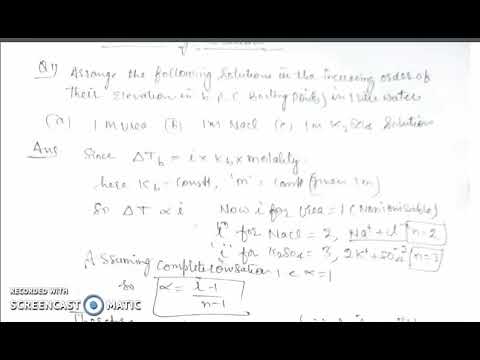 Q1) Arrange the following Solutions in the increasing order of
Their Elevation in b.p. (Boiling Points) in 1 litre water
(a) 1 M Urea (b) 1M NaCl (c) 1m K2SO4 Solutions
Ans. Since ΔTb = i x Kb x molality.
here Kb = Const, 'm' = Const (given 1m)
So ΔT ∝ i Now i for Urea = 1 (Nonionisable)
'i' for NaCl = 2, Na+ + Cl- n=2
'i' for K2SO4 = 3, 2K+ + SO4-2 n=3
Assuming Complete ionisation, α=1
so α = i-1/n-1
RECORDED WITH
SCREENCAST MATIC